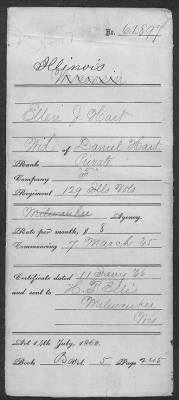 No. 61897
Illinois
Ellen J Hart
Wid of Daniel Hart
Rank Private
Company
Regiment 129 Ills Vols
Milwaukee Agency
Rate per month, $ 8
Commencing 7 March '65
Certificate dated 11 Jany '66
and sent to H. T. Ellis
Milwaukee
Wis
Act 14th July, 1862.
Book B Vol. 5 Page 245